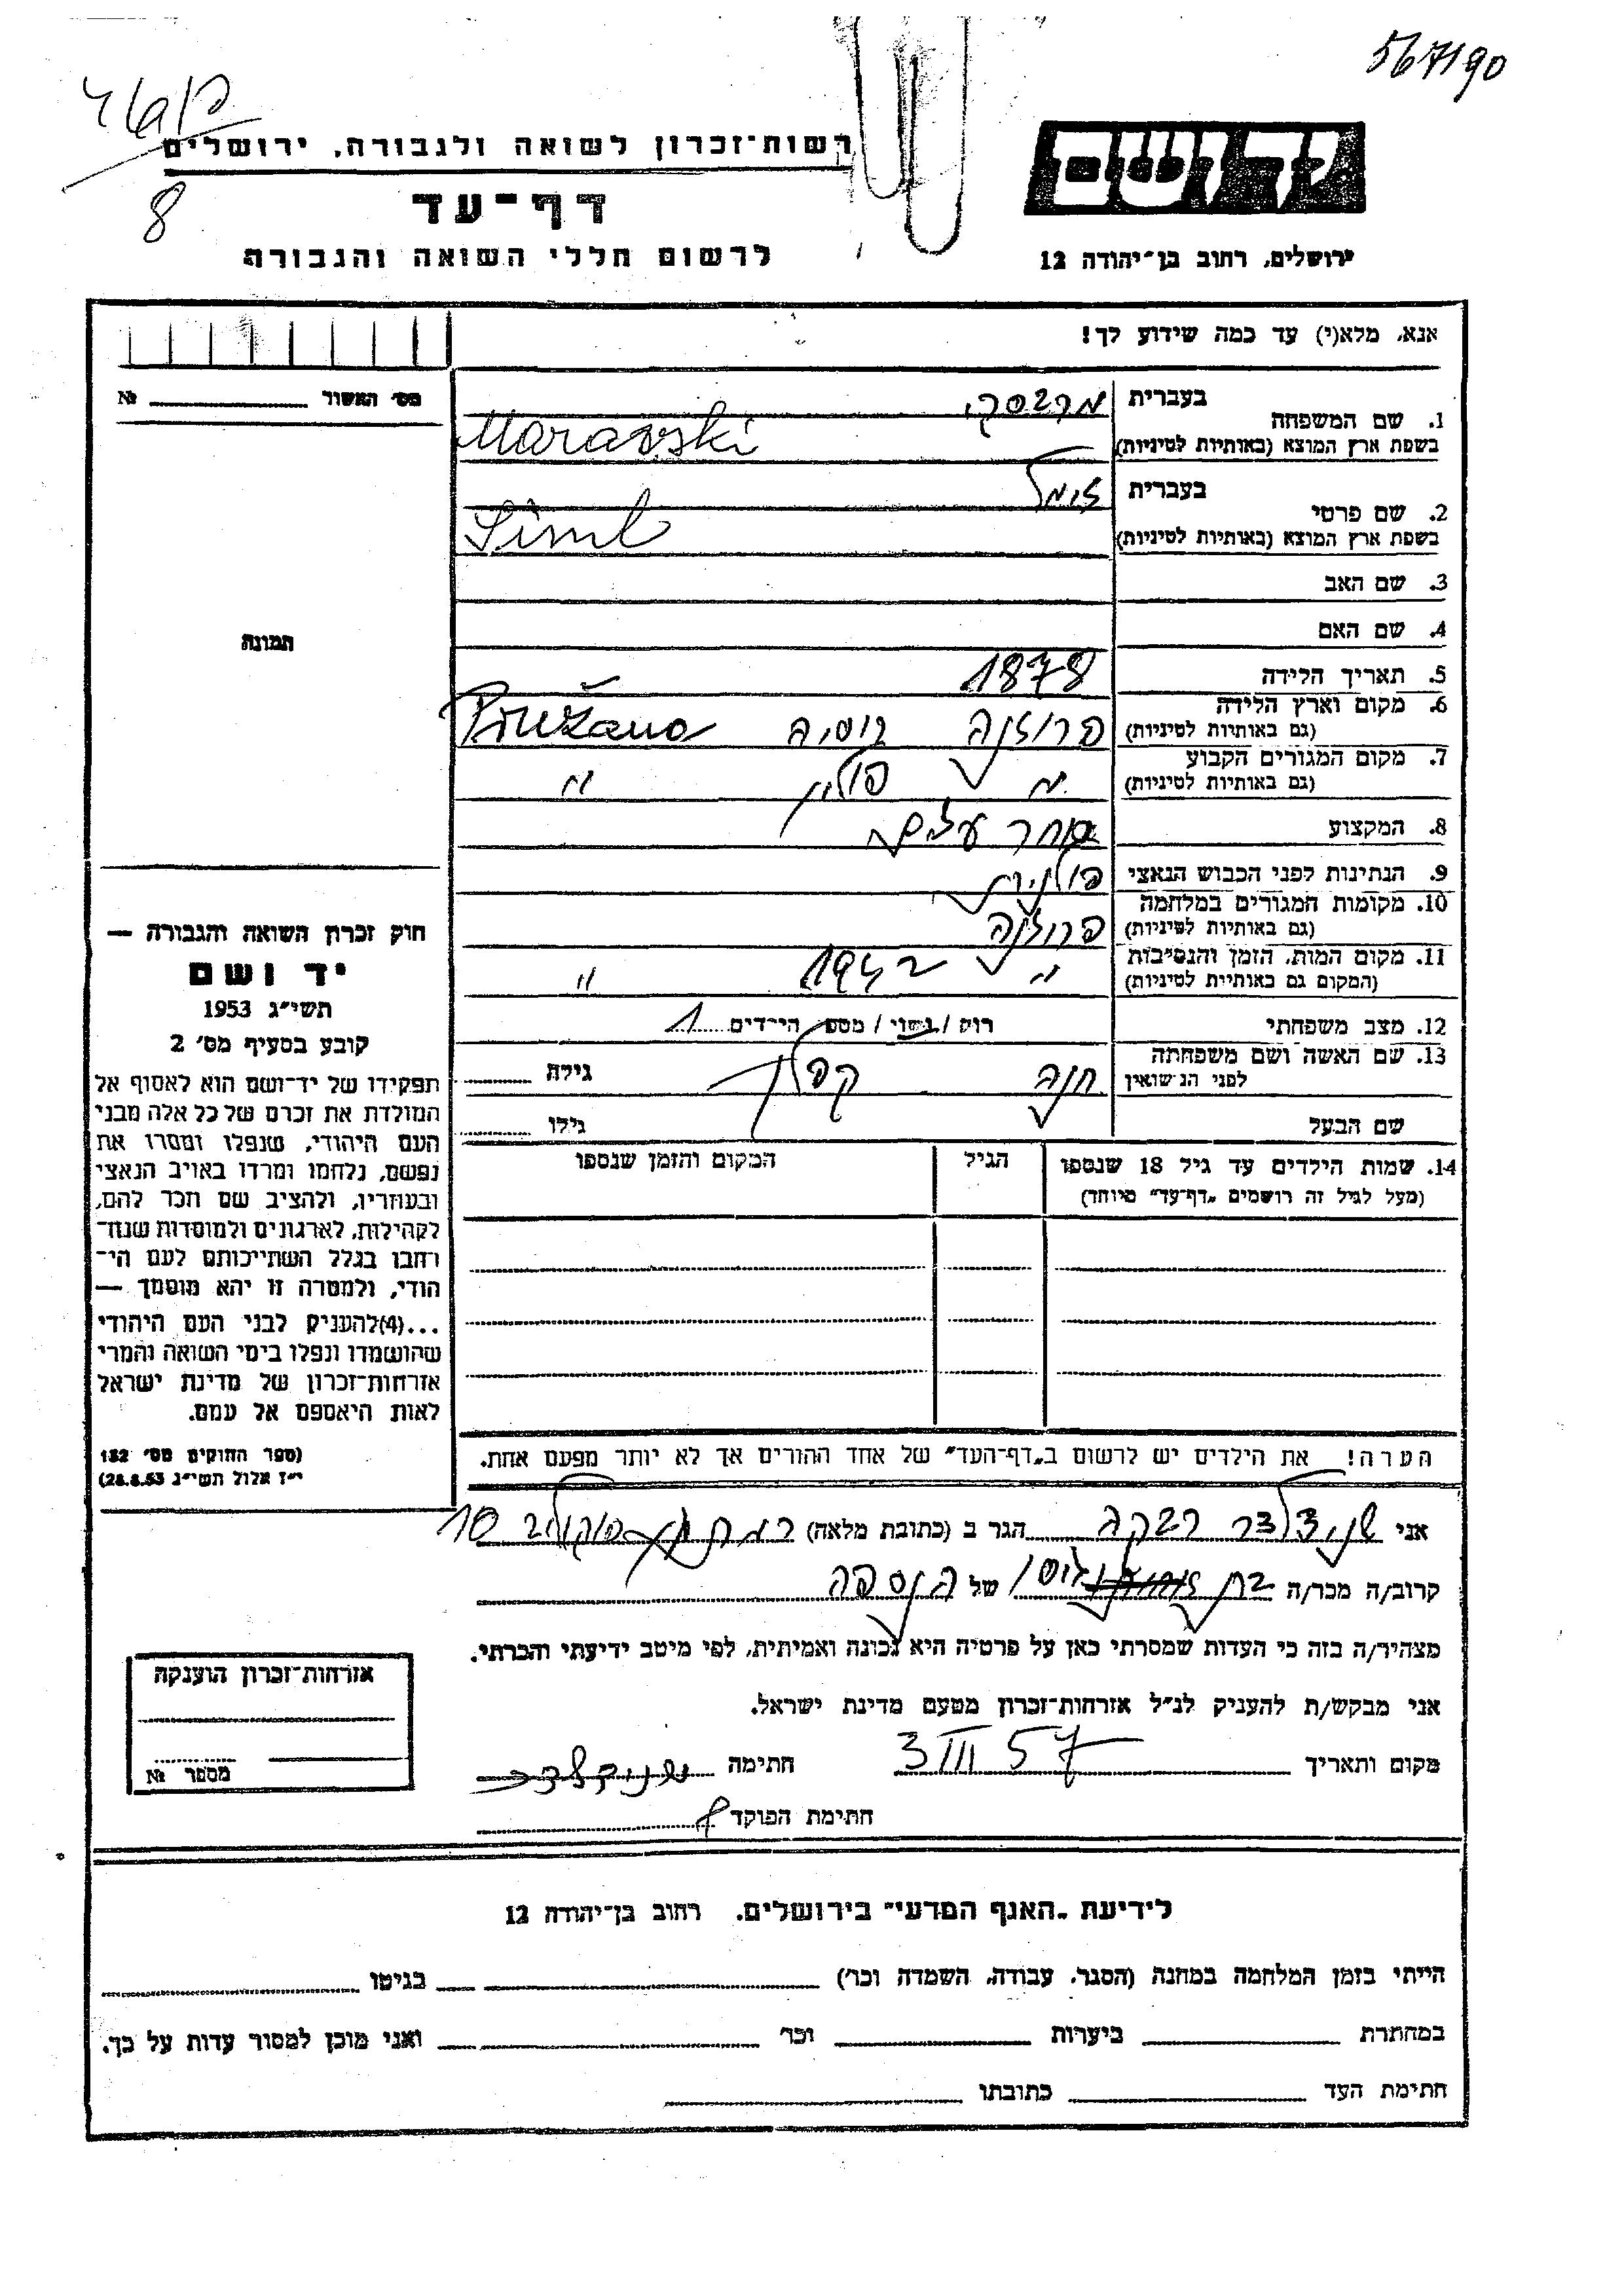 567190
רשות־זכרון לשואה ולגבורה, ירושלים
יד ושם
8
דף־עד
לרשום חללי השואה והגבורה
ירושלים, רחוב בן־יהודה 12
אנא, מלא(י) עד כמה שידוע לך!
מס׳ האשור № ______
תמונה
1. שם המשפחה
בעברית מרבסקי
בשפת ארץ המוצא (באותיות לטיניות) Maravski
2. שם פרטי
בעברית זימל
בשפת ארץ המוצא (באותיות לטיניות) Siml
3. שם האב
4. שם האם
5. תאריך הלידה 1878
6. מקום וארץ הלידה
(גם באותיות לטיניות) פרוזנה רוסיה Pružana
7. מקום המגורים הקבוע
(גם באותיות לטיניות) " פולין "
8. המקצוע סוחר עצים
9. הנתינות לפני הכבוש הנאצי פולנית
10. מקומות המגורים במלחמה
(גם באותיות לטיניות) פרוזנה
11. מקום המות, הזמן והנסיבות
(המקום גם באותיות לטיניות) " 1942 "
12. מצב משפחתי רווק / נשוי / מספר הילדים 1
13. שם האשה ושם משפחתה
לפני הנישואין חנה קפלן גילה
שם הבעל גילו
14. שמות הילדים עד גיל 18 שנספו
(מעל לגיל זה רושמים „דף־עד״ מיוחד)
הגיל
המקום והזמן שנספו
הערה! את הילדים יש לרשום ב„דף־העד״ של אחד ההורים אך לא יותר מפעם אחת.
חוק זכרון השואה והגבורה —
יד ושם
תשי״ג 1953
קובע בסעיף מס׳ 2
תפקידו של יד־ושם הוא לאסוף אל
המולדת את זכרם של כל אלה מבני
העם היהודי, שנפלו ומסרו את
נפשם, נלחמו ומרדו באויב הנאצי
ובעוזריו, ולהציב שם וזכר להם,
לקהילות, לארגונים ולמוסדות שנח־
רבו בגלל השתייכותם לעם הי־
הודי, ולמטרה זו יהא מוסמך —
...(4)להעניק לבני העם היהודי
שהושמדו ונפלו בימי השואה והמרי
אזרחות־זכרון של מדינת ישראל
לאות היאספם אל עמם.
(ספר החוקים מס׳ 132
י״ז אלול תשי״ג 28.8.53)
אני שניצלצר רבקה הגר ב (כתובת מלאה) רמת גן 10
קרוב/ה מכר/ה בת של הנספה
מצהיר/ה בזה כי העדות שמסרתי כאן על פרטיה היא נכונה ואמיתית, לפי מיטב ידיעתי והכרתי.
אני מבקש/ת להעניק לנ״ל אזרחות־זכרון מטעם מדינת ישראל.
מקום ותאריך 3 III 57 חתימה
חתימת הפוקד
אזרחות־זכרון הוענקה
מספר №
לידיעת „האגף המדעי״ בירושלים, רחוב בן־יהודה 12
הייתי בזמן המלחמה במחנה (הסגר, עבודה, השמדה וכו׳) ______ בגיטו ______
במחתרת ______ ביערות ______ וכו׳ ______ ואני מוכן למסור עדות על כך.
חתימת העד ______ כתובתו ______